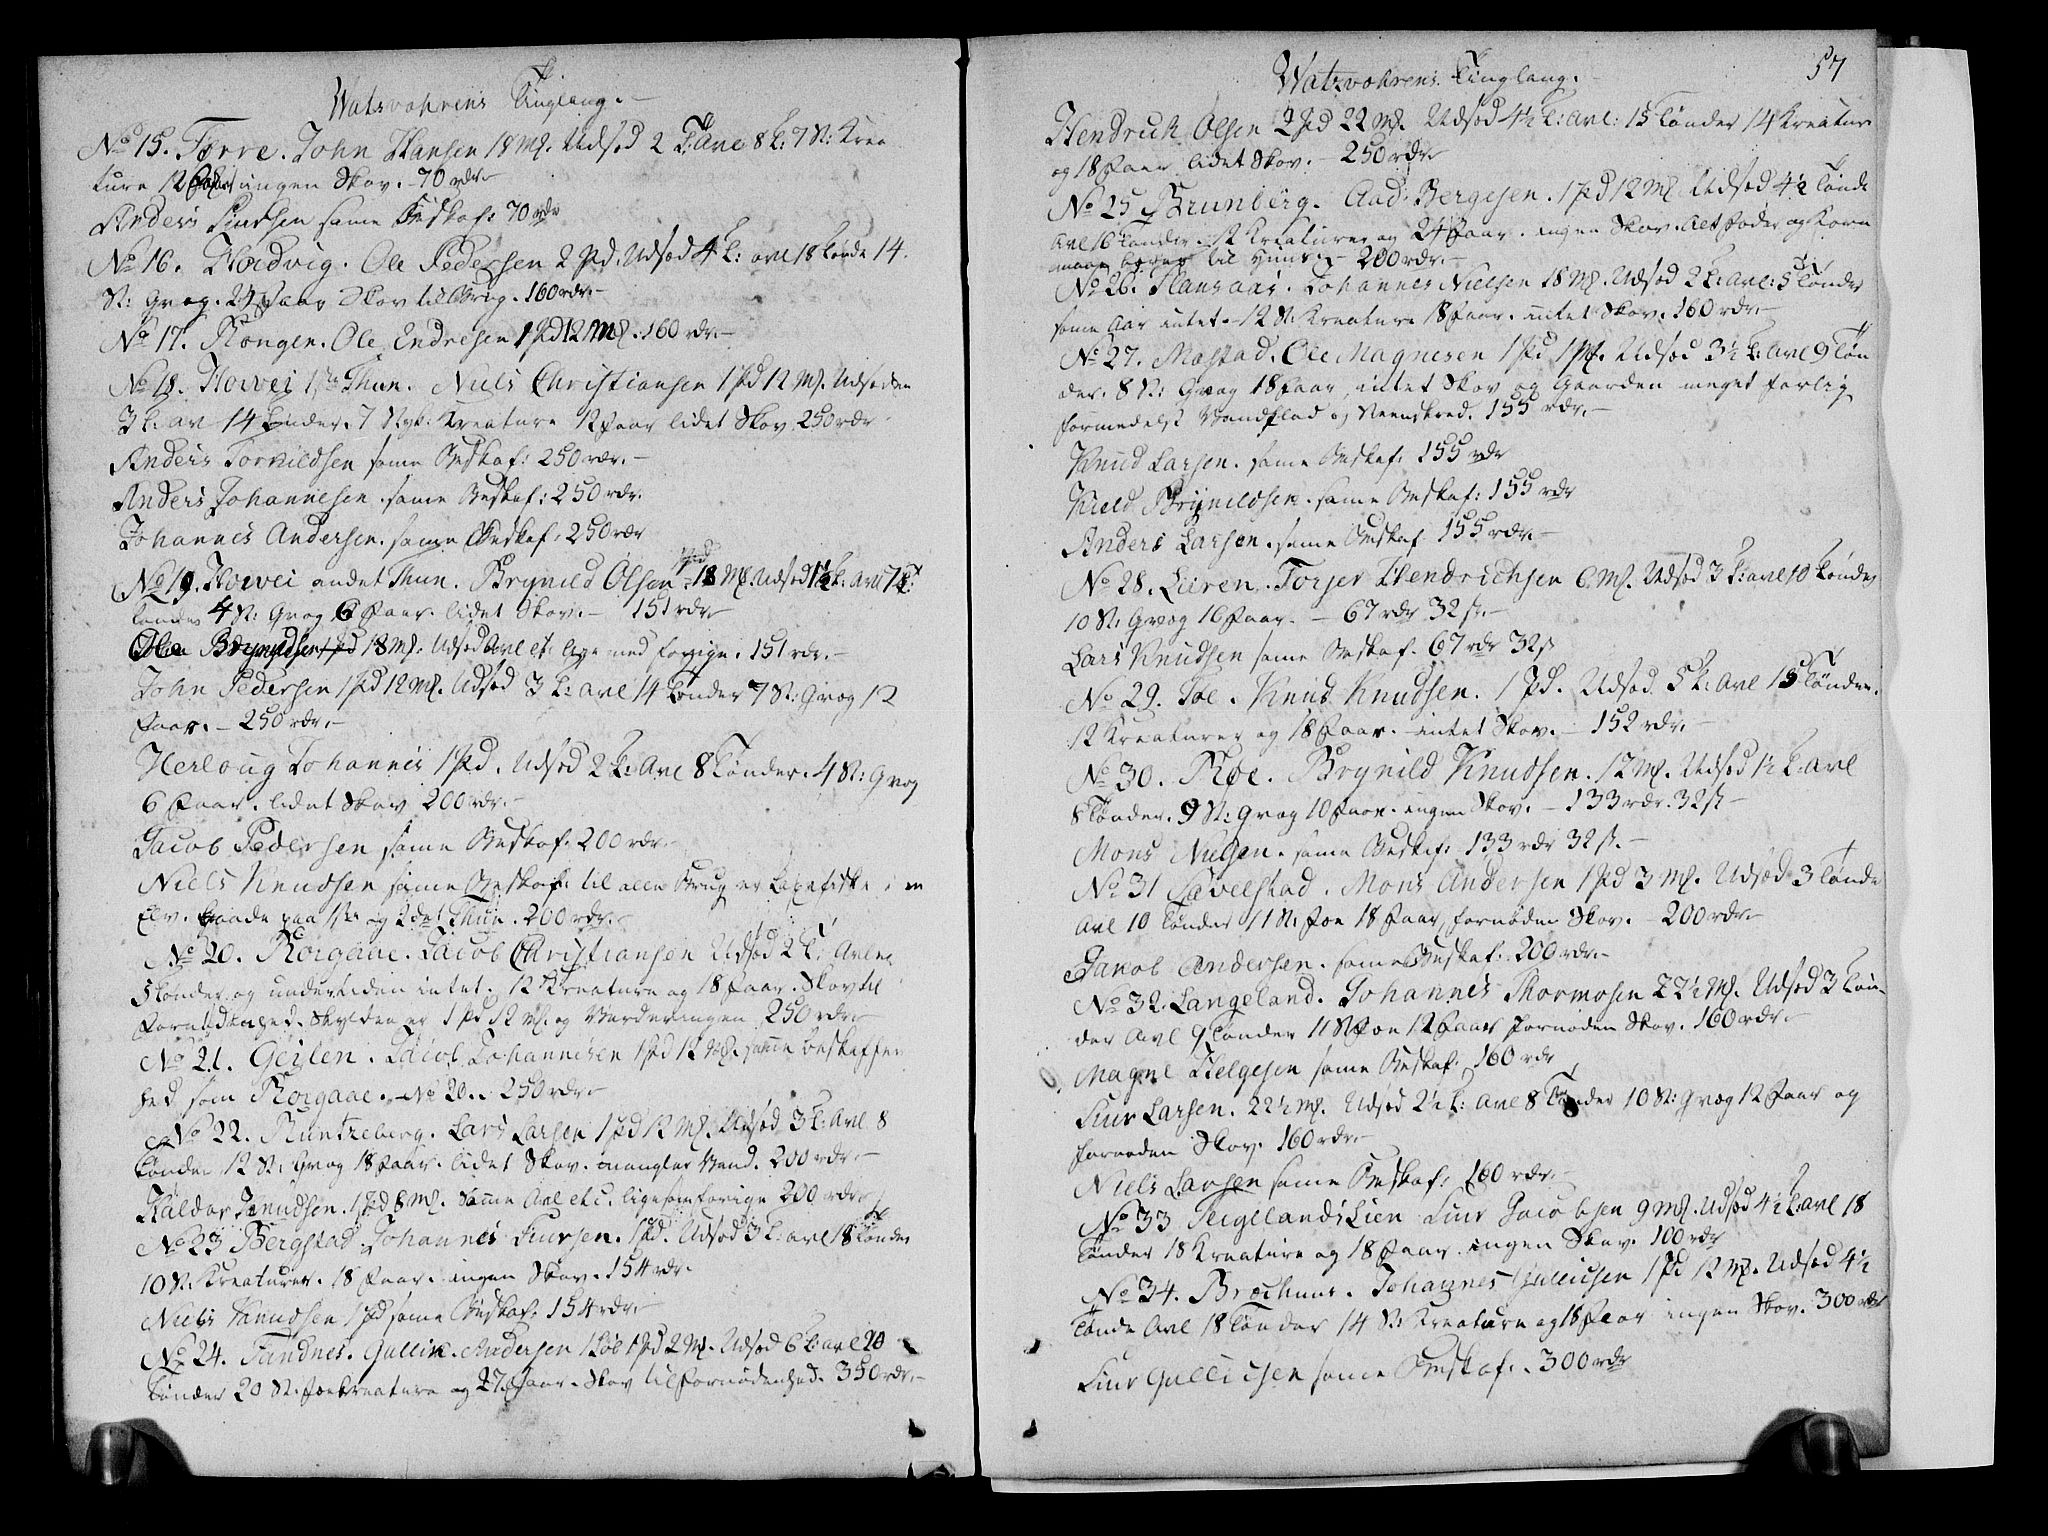 Watzvohrens Tinglaug.
No 15. Torre. John Hansen 18 Mf. Udsæd 2 T: Avl 8 t: 7 St: Krea
ture 12 Faar ingen Skov. 70 rdr
Anders Siursen same Beskaf: 70 rdr
No 16. Hordvig. Ole Pedersen 2 Pd. Udsæd 4 t: avl 18 tønde 14.
St: Qvæg. 24 Faar Skov til Brug. 160 rdr.
No 17. Rongen. Ole Endresen 1 Pd 12 Mf. 160 rdr.
No 18. Horvei 1ste Thun. Niels Christiansen 1 Pd 12 Mf. Udsæden
3 t: av 14 tønder. 7 Styk: Kreature 12 Faar lidet Skov 250 rdr
Anders Torkildsen same Beskaf: 250 rdr.
Anders Johannesen same Beskaf: 250 rdr.
Johannes Andersen. same Beskaf: 250 rdr
No 19. Horvei andet Thun. Brynild Olsen 18 Mf. Udsæd 1½ t: Avl 7
tønder 4 St: Qvæg 6 Faar. lidet Skov. 151 rdr
Ole 18 Mf. Udsæd Avl et lige med forrige. 151 rdr.
John Pedersen 1 Pd 12 Mf. Udsæd 3 t: avl 14 tønder 7 St: Qvæg 12
Faar. 250 rdr.
Herloug Johannes 1 Pd. Udsæd 2 t: Avl 8 Tønder. 4 St: Qvæg
6 Faar. lidet Skov 200 rdr.
Jacob Pedersen same Beskaf. 200 rdr.
Niels Knudsen same Beskaf: til alle Brug er Laxefiske i en
Elv. baade paa 1ste og 2det Thun. 200 rdr.
No 20. Rorgaae. Jacob Christiansen Udsæd 2 T: Avlen
5 tønder og undertiden intet. 12 Kreature og 18 Faar. Skov til
Fornødenhed. Skylden er 1 Pd 12 Mf. og Vurderingen 250 rdr
No 21. Geilen. Jacob Johannesen 1 Pd 12 Mf. samme beskaffen
hed som Rorgaae. No 20. 250 rdr.
No 22. Runtzeberg. Lars Larsen 1 Pd 12 Mf. Udsæd 3 t: Avl 8
tønder 12 St: Qvæg 18 Faar. lidet Skov. mangler Vand. 200 rdr.
Haldor Knudsen. 1 Pd 8 Mf. Samme Avl etc. ligesom forrige 200 rdr
No 23 Bergstad. Johannes Siursen. 1 Pd. Udsæd 3 t: avl 18 tønder
10 St. Kreaturer. 18 Faar. ingen Skov. 154 rdr.
Niels Knudsen 1 Pd same Beskaf: 154 rdr.
No 24. Fandnes. Gullik Andersen 1 Løb 1 Pd 2 Mf. Udsæd 6 t: avl 20
tønder 20 St. Føe kreature og 27 Faar. Skov til fornødenhed. 350 rdr.
57
Watzvohrens Tinglaug.
Hendrich Olsen 2 Pd 22 Mf. Udsæd 4½ t: avl: 15 tønder 14 Kreatur
og 18 Faar lidet Skov. 250 rdr
No 25 Brunberg. Aad: Bergesen. 1 Pd 12 Mf. Udsæd 4½ tønde
Avl 16 tønder. 12 Kreaturer og 24 Faar. ingen Skov. Alt foder og Korn
maae bæres til Huus. 200 rdr.
No 26. Hansaas. Johannes Nielsen 18 Mf. Udsæd 2 t: Avl: 5 tønder
some Aar intet. 12 St. Kreature 18 Faar. intet Skov. 160 rdr.
No 27. Mæstad. Ole Magnesen 1 Pd 1 Mf. Udsæd 3½ t: Avl 9 tøn
der. 8 St: Qvæg 18 Faar, intet Skov og Gaarden meget farlig
formedelst Vandflod og Steenskred. 155 rdr.
Knud Larsen. same Beskaf: 155 rdr
Kield Brynildsen. same Beskaf: 155 rdr
Anders Larsen. same Beskaf 155 rdr.
No 28. Leiren. Torger Hendrichsen 6 Mf. Udsæd 3 t: avl 10 tønder
10 St: Qvæg 16 Faar. 67 rdr 32 s.
Lars Knudsen same Beskaf. 67 rdr 32 s
No 29. Toe. Knud Knudsen. 1 Pd. Udsæd 5 t: Avl 15 Tønder.
12 Kreaturer og 18 Faar. intet Skov. 152 rdr.
No 30. Røe. Brynild Knudsen. 12 Mf. Udsæd 1½ t: avl
8 tønder. 9 St: Qvæg 10 Faar. ingen Skov. 133 rdr. 32 s
Mons Nielsen. same Beskaf: 133 rdr 32 s.
No 31 Sævelstad. Mons Andersen 1 Pd 3 Mf. Udsæd 3 Tønde
Avl 10 tønder 11 St: Føe 18 Faar, fornøden Skov. 200 rdr.
Jakob Andersen. same Beskaf. 200 rdr.
No 32. Langeland. Johannes Thormosen 22½ Mf. Udsæd 3 tøn-
der Avl 9 tønder 11 St Føe 12 Faar fornøden Skov. 160 rdr.
Magne Helgesen same Beskaf. 160 rdr
Siur Larsen. 22½ Mf. Udsæd 2½ t: avl 8 tønder 10 St: Qvæg 12 Faar og
fornøden Skov. 160 rdr.
Niels Larsen same Beskaf: 160 rdr.
No 33 Teigelands Lien Siur Jacobsen 9 Mf. Udsæd 4½ t: avl 18
tønder 18 Kreature og 18 Faar. ingen Skov. 100 rdr
No 34. Brochuus. Johannes Gullichsen 1 Pd 12 Mf. Udsæd 4½
tønde Avl 18 Tønder 14 St: Kreature og 18 Faar ingen Skov. 300 rdr
Siur Gullichsen same Beskaf. 300 rdr